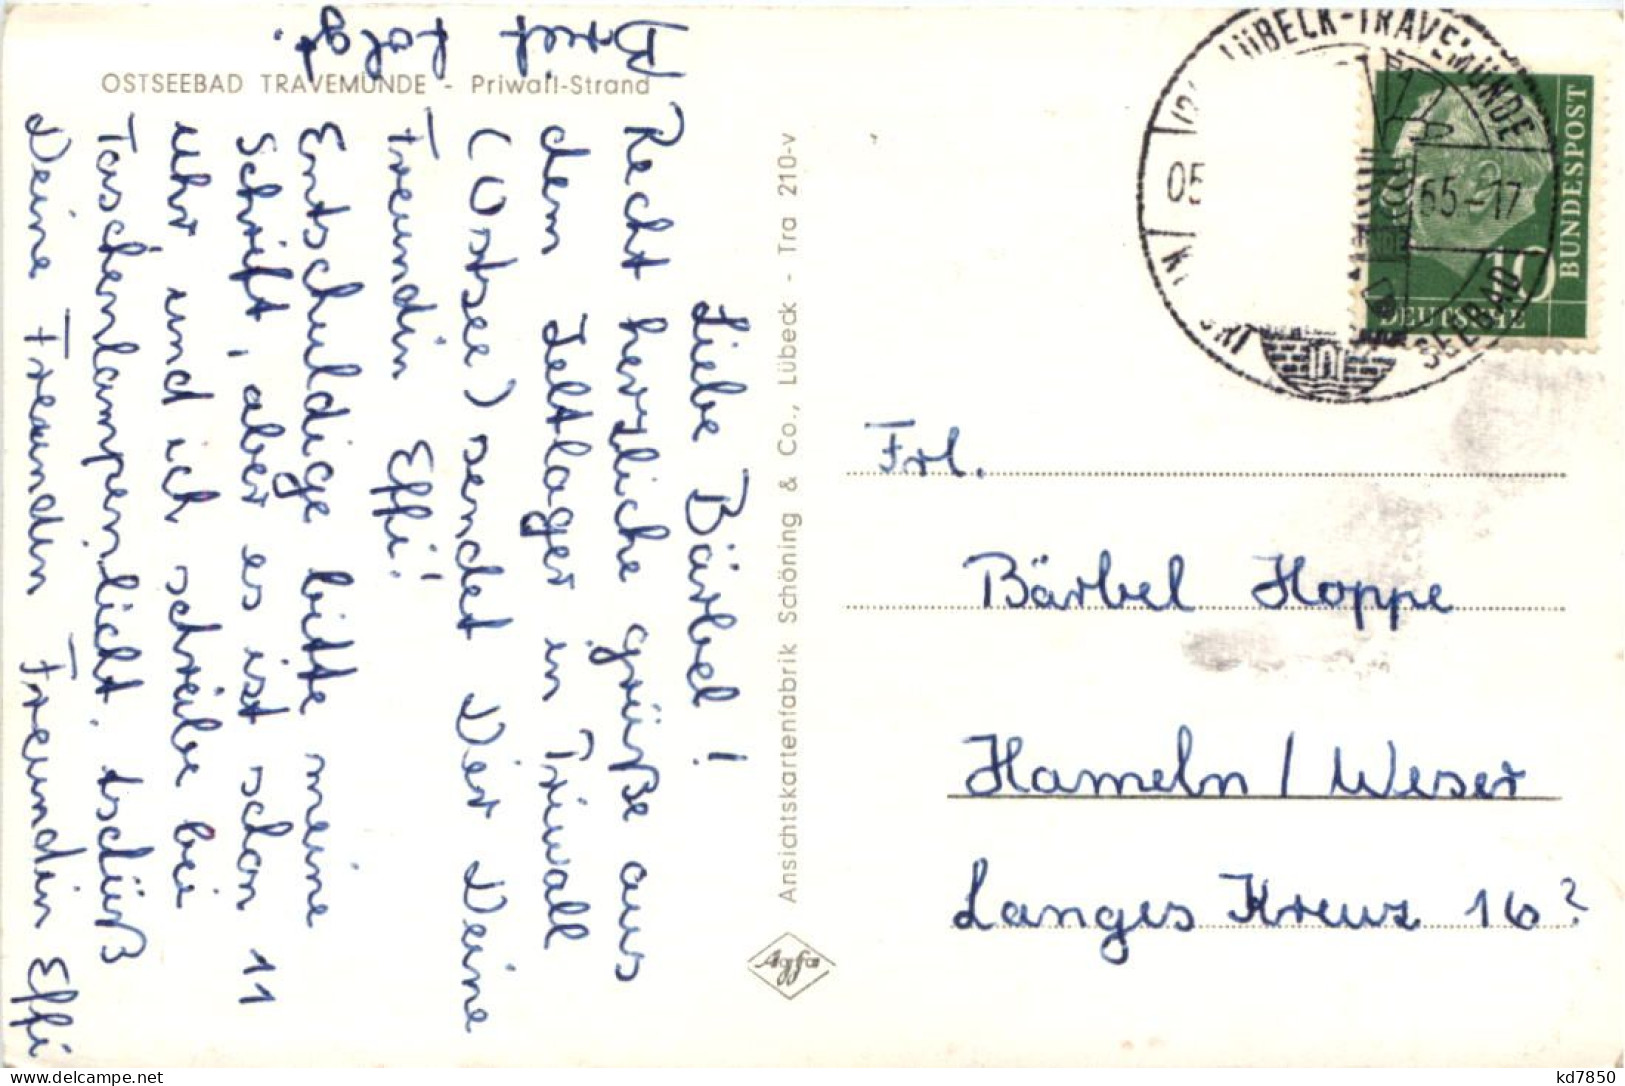 OSTSEEBAD TRAVEMÜNDE - Priwall-Strand
Liebe Bärbel!
Recht herzliche grüße aus
dem Zeltlager in Priwall
(Ostsee) sendet Dir Deine
Freundin Effi!
Entschuldige bitte meine
Schrift, aber es ist schon 11
Uhr und ich schreibe bei
Taschenlampenlicht. tschüß
Deine Freundin Freundin Effi
Brief folgt.
Ansichtskartenfabrik Schöning & Co., Lübeck - Tra 210-v
Agfa
LÜBECK-TRAVEMÜNDE
05 65-17
SEEBAD
DEUTSCHE
BUNDESPOST
10
Frl.
Bärbel Hoppe
Hameln / Weser
Langes Kreuz 16?
kd7850